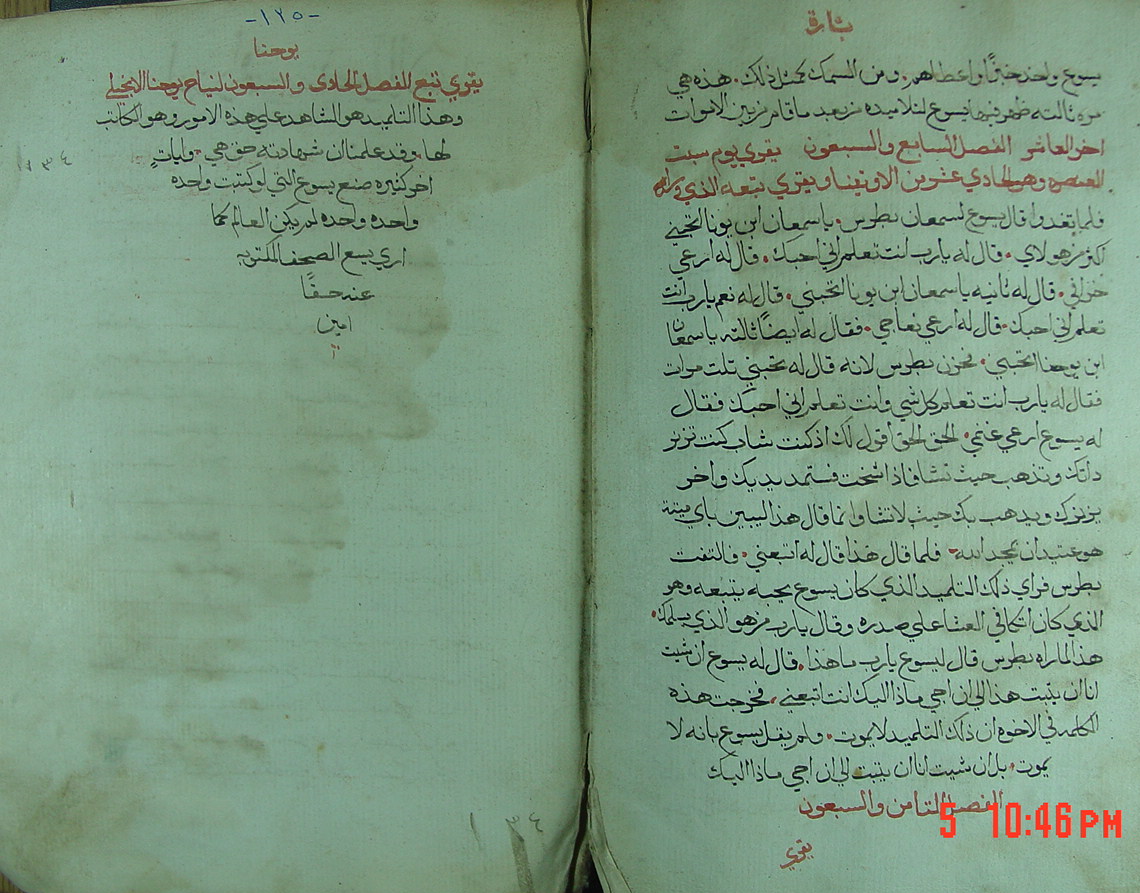 بشارة
يسوع واخد خبزًا واعطاهم. ومن السمك كمثل ذلك. هذه هي
مره ثالته ظهر فيها يسوع لتلاميده من بعد ما قام من بين الاموات
اخر العاشر الفصل السابع والسبعون يقري يوم سبت
العنصره وهو الحادي عشر من الاوتينا ويقري بتبعه الذي وراه
فلما تغدوا قال يسوع لسمعان بطرس. ياسمعان ابن يونا اتحبني
اكثر من هولاي. قال له يارب انت تعلم اني احبك. قال له ارعي
خرافي. قال له ثانيه ياسمعان ابن يونا اتحبني. قال له نعم يارب انت
تعلم اني احبك. قال له ارعي نعاجي. فقال له ايضًا ثالته ياسمعان
ابن يوحنا اتحبني. فحزن بطرس لانه قال له تحبني تلت مرات
فقال له يارب انت تعلم كل شي وانت تعلم اني احبك فقال
له يسوع ارعي غنمي. الحق الحق اقول لك اذ كنت شاب كنت تزنر
داتك وتذهب حيث تشا فاذا شخت فستمد يديك واخر
يزنرك ويدهب بك حيث لا تشا وانما قال هذا ليبين باي ميتة
هو عتيد ان يمجد الله. فلما قال هذا قال له اتبعني. والتفت
بطرس فراي ذلك التلميد الذي كان يسوع يحبه يتبعه وهو
الذي كان اتكا في العشا علي صدره وقال يارب من هو الذي يسلمك.
هذا لما راه بطرس قال ليسوع يارب ما هذا. قال له يسوع ان شيت
انا ان يتبت هذا الي ان اجي ماذا اليك انت اتبعني. فخرجت هذه
الكلمه في الاخوه ان ذلك التلميد لا يموت. ولم يقل يسوع بانه لا
يموت. بل ان شيت انا ان يتبت الي ان اجي ماذا اليك
الفصل التامن والسبعون
يقري
-١٢٥-
يوحنا
يقري تبع الفصل الحادي والسبعون لنياح يوحنا الانجيلي
وهذا التلميد هو الشاهد علي هذه الامور وهو الكاتب
لها. وقد علمنا ان شهادته حق هي. وايات
اخر كثيره صنع يسوع التي لو كتبت واحده
واحده واحده لم يكن العالم كما
اري يسع الصحف المكتوبه
عنه حقًا
امين
١٣٤
١٣٤
5 10:46 PM